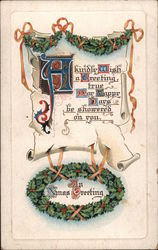 A
kindly Wish
a Greeting
true
For Happy
Days
be showered
on you.
An
Xmas Greeting